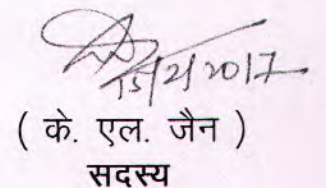 15/2/2017
( के. एल. जैन )
सदस्य